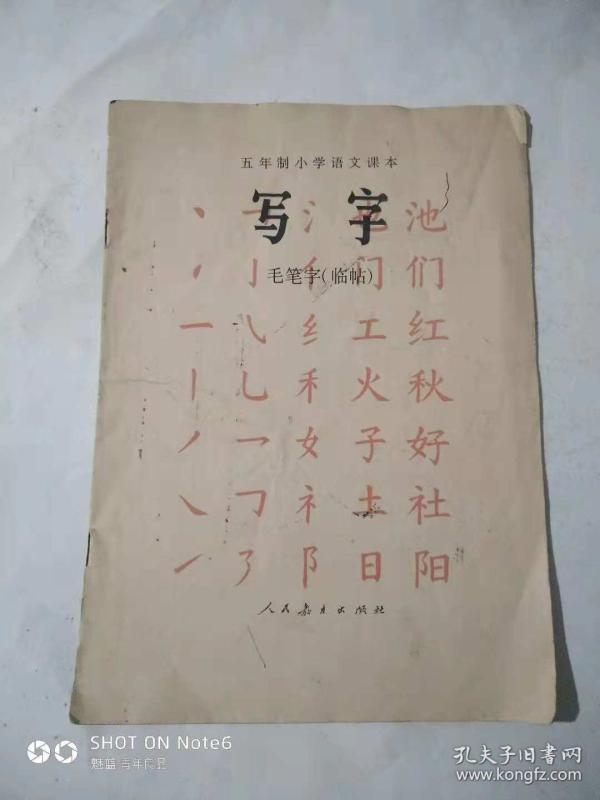 五年制小学语文课本
写字
毛笔字(临帖)
丶 氵 也 池
亻 门 们
一 纟 工 红
丨 乚 禾 火 秋
丿 乛 女 子 好
㇏ 礻 土 社
阝 日 阳
人民教育出版社
SHOT ON Note6
魅蓝 青年良品
孔夫子旧书网
www.kongfz.com